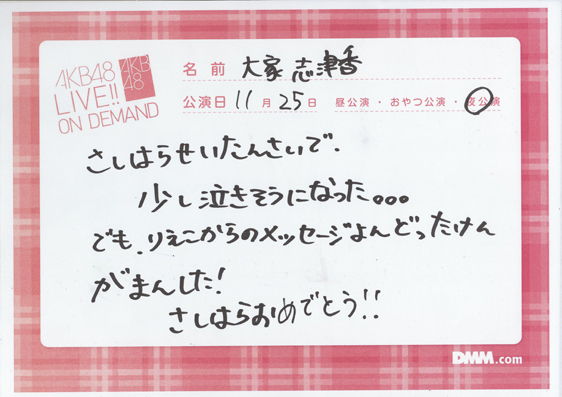 AKB48
LIVE!!
ON DEMAND
AKB
48
名前 大家志津香
公演日 11月25日 昼公演・おやつ公演・夜公演
さしはらせいたんさいで、
少し泣きそうになった。。。
でも、りえこからのメッセージよんどったけん
がまんした!
さしはらおめでとう!!
DMM.com